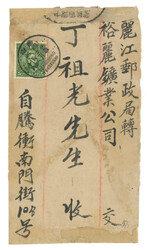 麗江郵政局轉
裕麗鑛業公司 交
丁祖光先生 收
自騰衝南門街103号